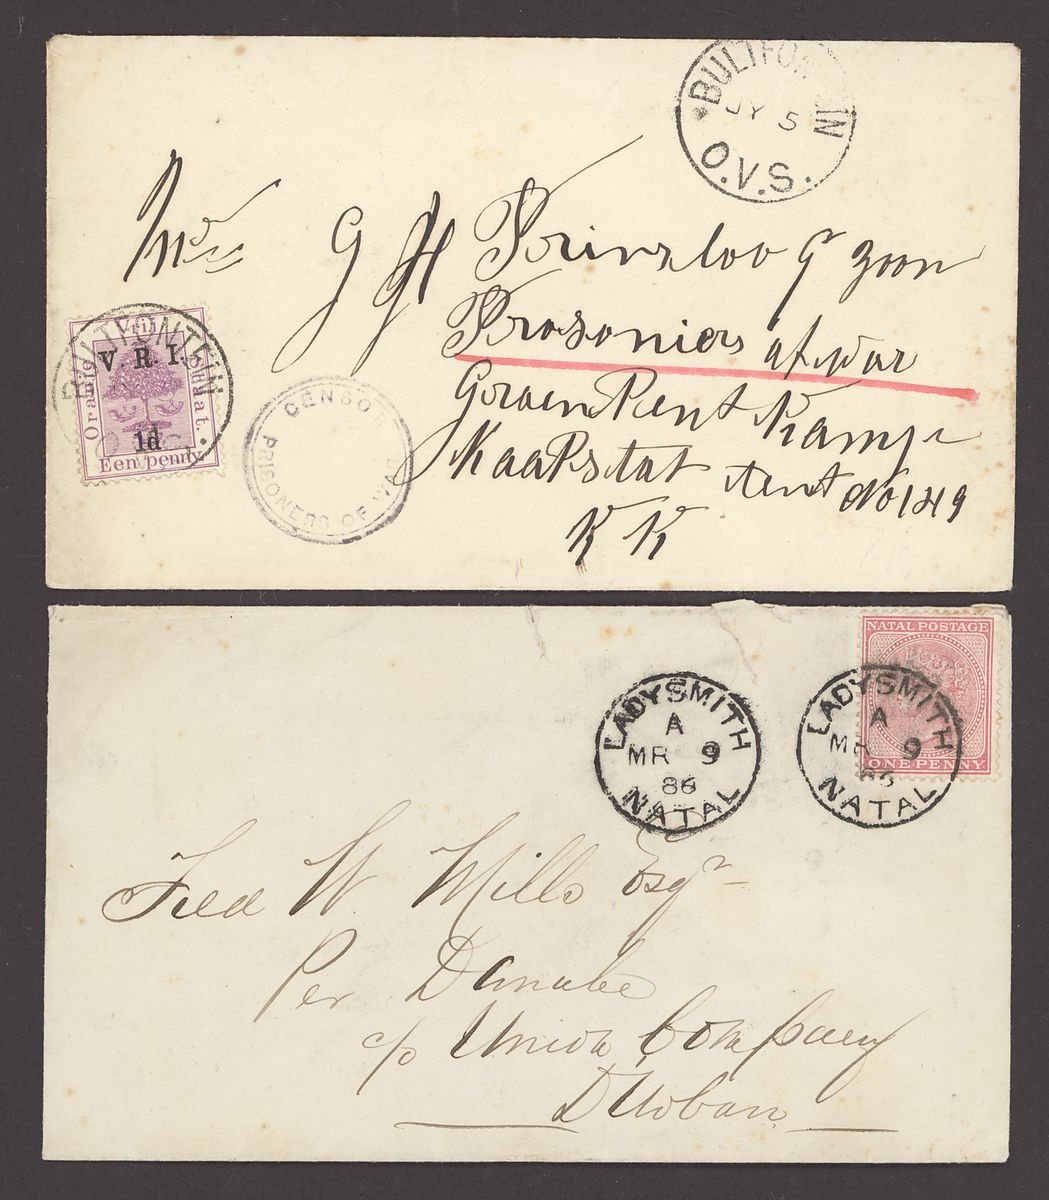 BULTFON IN
JY 5
O.V.S.
Mr G H Prinsloo Gr zoon
Prosoniers of war
Groen Pent Kamp
Kaapstat tent No 149
K K
BULTFONTEIN
Oranje Vrij Staat.
V. R. I.
1d
Een penny
CENSOR
PRISONERS OF WAR
NATAL POSTAGE
ONE PENNY
LADYSMITH
A
MR 9
86
NATAL
LADYSMITH
A
MR 9
86
NATAL
Fred W Mills Esqr
Per Danube
c/o Union Company
Durban